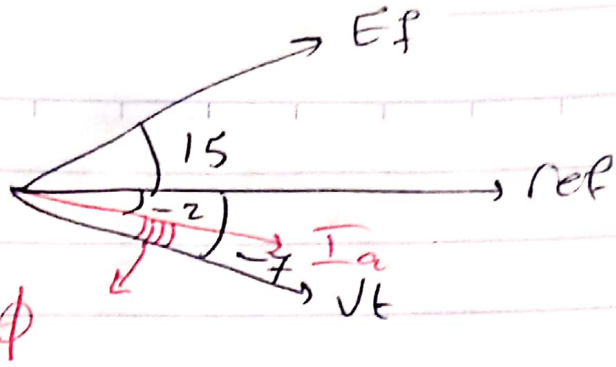 Ef
15
ref
-2
Ia
-7
Vt
φ